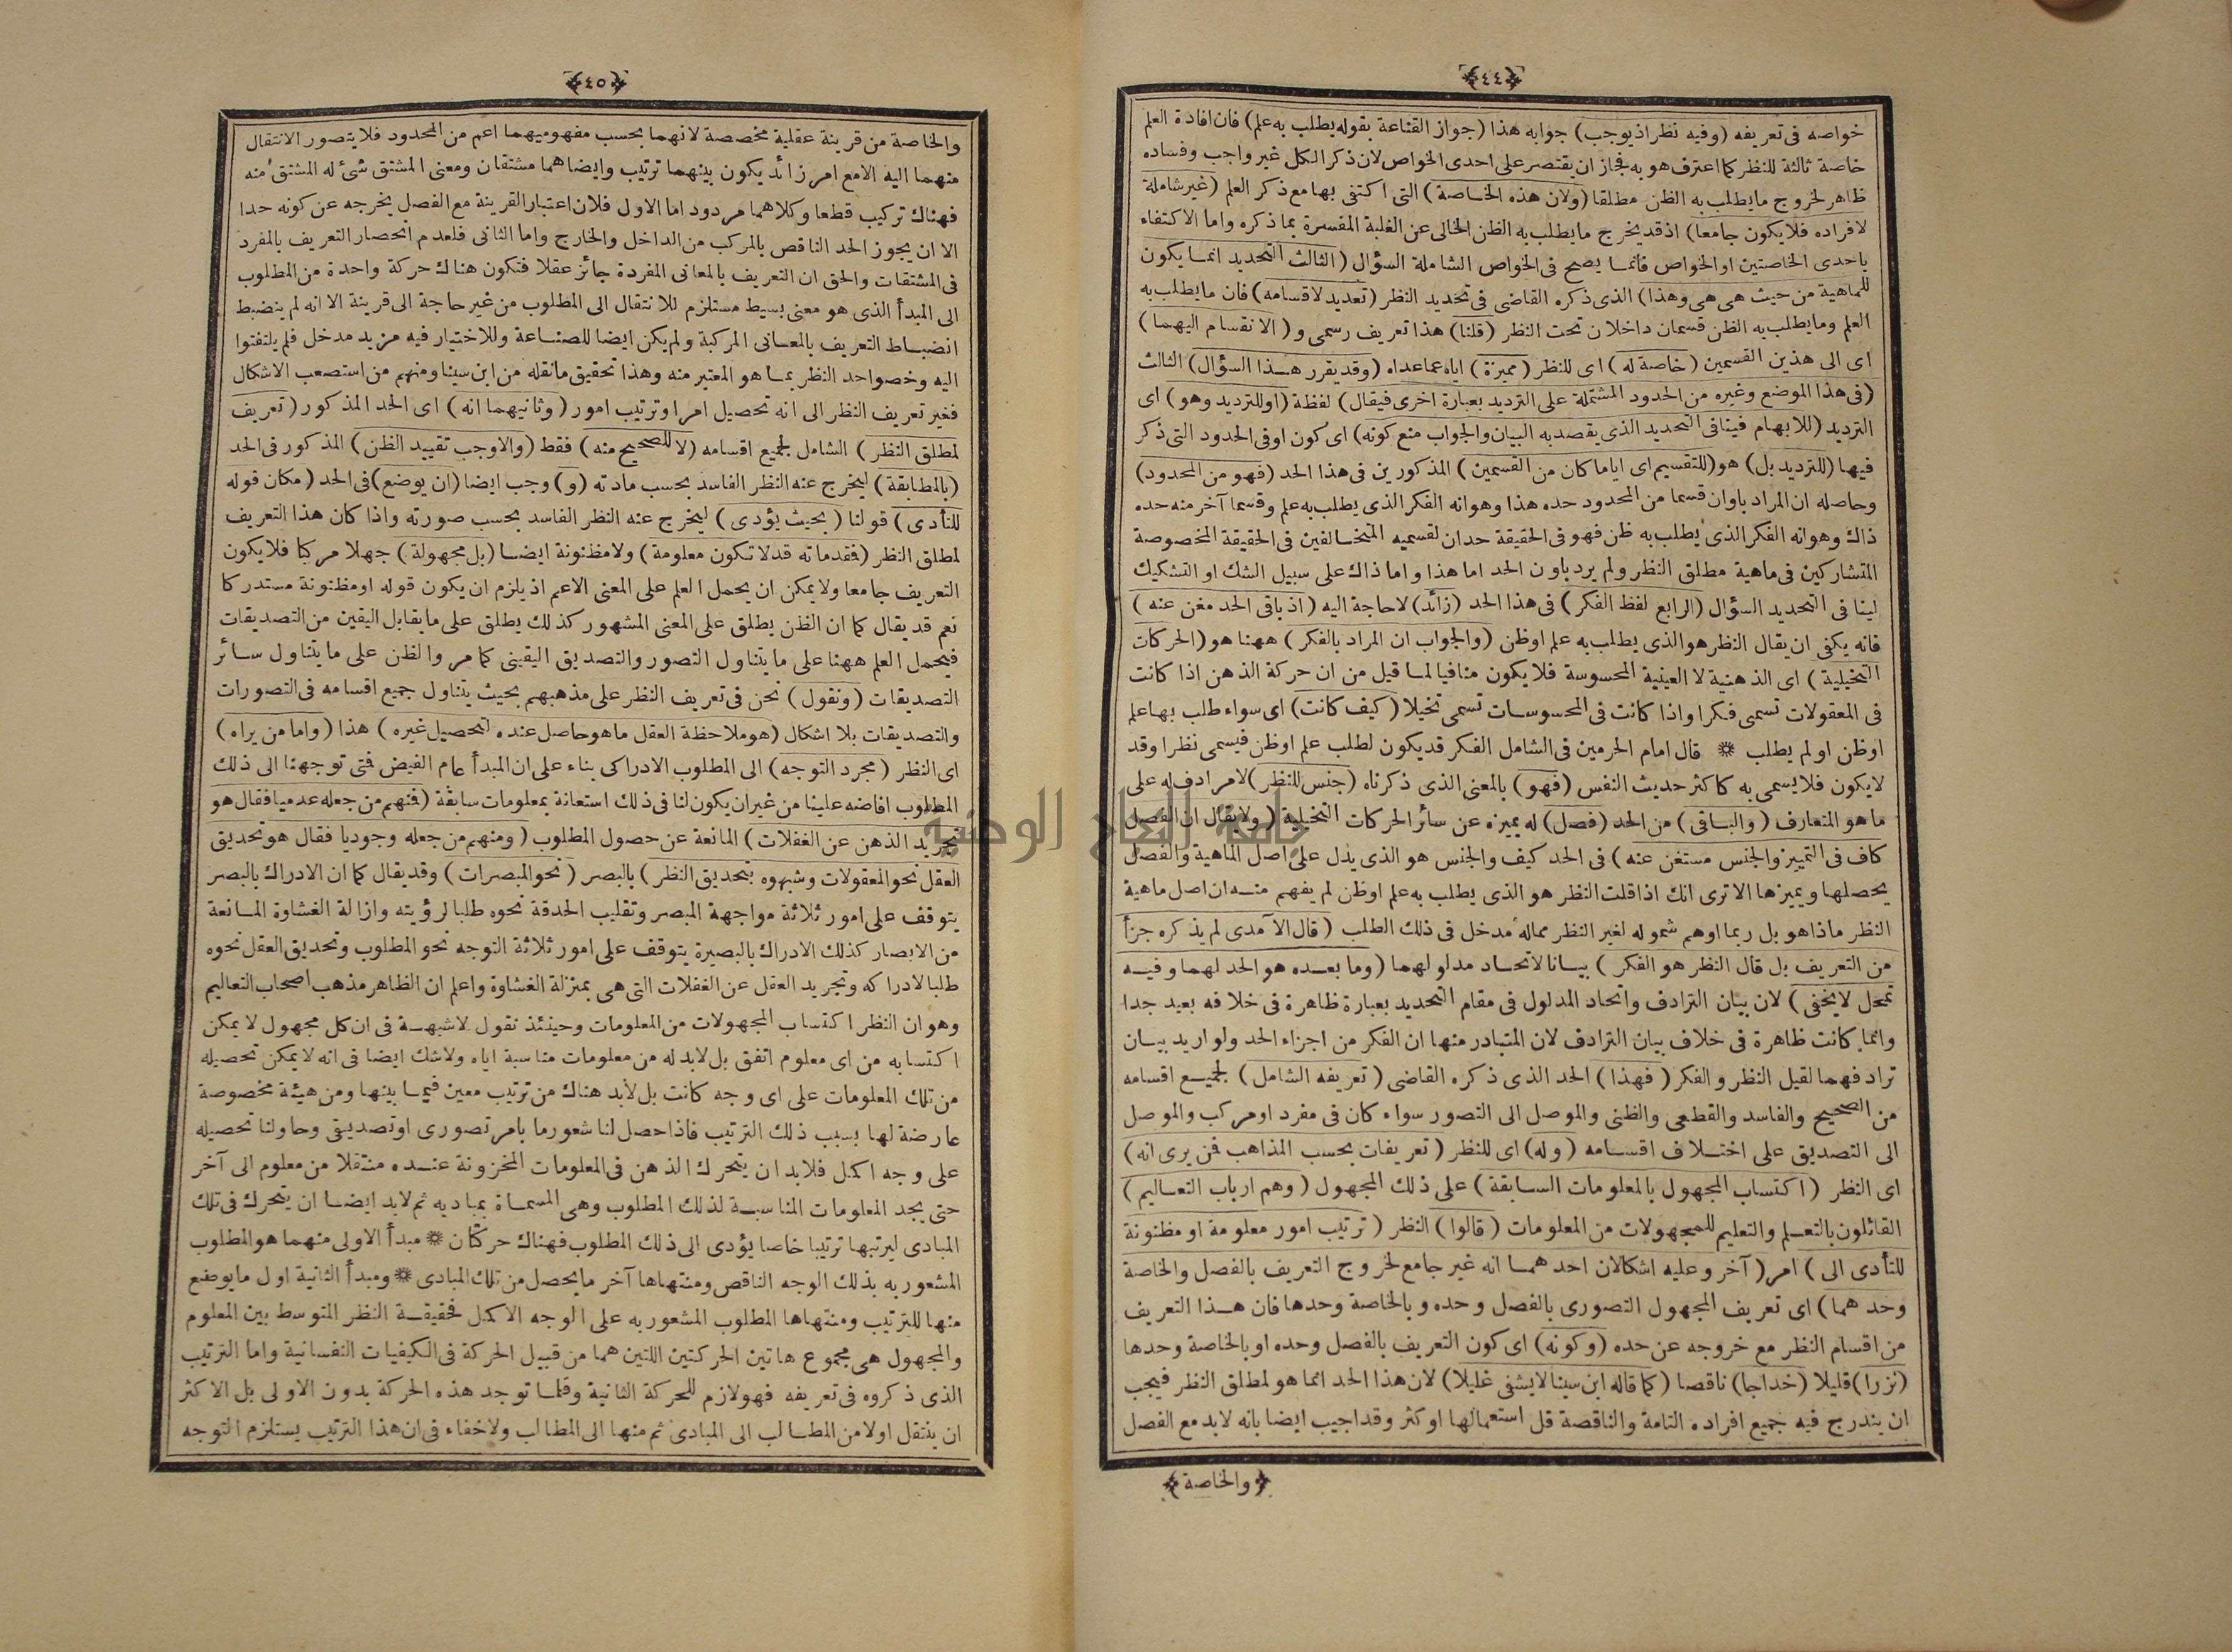 ﴿٤٤﴾
خواصه فى تعريفه (وفيه نظر اذ يوجب) جوابه هذا (جواز القناعة بقوله يطلب به علم) فان افادة العلم
خاصة ثالثة للنظر كما اعترف هو به فجاز ان يقتصر على احدى الخواص لان ذكر الكل غير واجب وفساده
ظاهر لخروج ما يطلب به الظن مطلقا (ولان هذه الخاصة) التى اكتفى بها مع ذكر العلم (غير شاملة
لافراده فلا يكون جامعا) اذ قد يخرج ما يطلب به الظن الخالى عن الغلبة المفسرة بما ذكره واما الاكتفاء
باحدى الخاصتين او الخواص فانما يصح فى الخواص الشاملة السؤال (الثالث التحديد انما يكون
للماهية من حيث هى هى وهذا) الذى ذكره القاضى فى تحديد النظر (تعديد لاقسامه) فان ما يطلب به
العلم وما يطلب به الظن قسمان داخلان تحت النظر (قلنا) هذا تعريف رسمى و (الانقسام اليهما)
اى الى هذين القسمين (خاصة له) اى للنظر (مميزة) اياه عما عداه (وقد يقرر هذا السؤال) الثالث
(فى هذا الموضع وغيره من الحدود المشتملة على الترديد بعبارة اخرى فيقال) لفظة (او للترديد وهو) اى
الترديد (للابهام فينافى التحديد الذى يقصد به البيان والجواب منع كونه) اى كون او فى الحدود التى ذكر
فيها (للترديد بل) هو (للتقسيم اى اياما كان من القسمين) المذكورين فى هذا الحد (فهو من المحدود)
وحاصله ان المراد باوان قسما من المحدود حده هذا وهوانه الفكر الذى يطلب به علم وقسما آخر منه حده
ذاك وهوانه الفكر الذى يطلب به ظن فهو فى الحقيقة حدان لقسميه المتخالفين فى الحقيقة المخصوصة
المتشاركين فى ماهية مطلق النظر ولم يرد باو ن الحد اما هذا واما ذاك على سبيل الشك او التشكيك
لينا فى التحديد السؤال (الرابع لفظ الفكر) فى هذا الحد (زائد) لاحاجة اليه (اذ باقى الحد مغن عنه)
فانه يكفى ان يقال النظر هو الذى يطلب به علم اوظن (والجواب ان المراد بالفكر) ههنا هو (الحركات
التخيلية) اى الذهنية لا العينية المحسوسة فلا يكون منافيا لما قيل من ان حركة الذهن اذا كانت
فى المعقولات تسمى فكرا واذا كانت فى المحسوسات تسمى تخيلا (كيف كانت) اى سواء طلب بها علم
اوظن اولم يطلب ۞ قال امام الحرمين فى الشامل الفكر قد يكون لطلب علم اوظن فيسمى نظرا وقد
لا يكون فلا يسمى به كاكثر حديث النفس (فهو) بالمعنى الذى ذكرناه (جنس للنظر) لا مرادف له على
ما هو المتعارف (والباقى) من الحد (فصل) له يميزه عن سائر الحركات التخيلية (ولا يقال ان الفصل
كاف فى التمييز والجنس مستغن عنه) فى الحد كيف والجنس هو الذى يدل على اصل الماهية والفصل
يحصلها ويميزها الاترى انك اذا قلت النظر هو الذى يطلب به علم اوظن لم يفهم منه ان اصل ماهية
النظر ماذا هو بل ربما اوهم شموله لغير النظر مماله مدخل فى ذلك الطلب (قال الآمدى لم يذكره جزأ
من التعريف بل قال النظر هو الفكر) بيانا لاتحاد مدلولهما (وما بعده هو الحد لهما وفيه
تمحل لا يخفى) لان بيان الترادف واتحاد المدلول فى مقام التحديد بعبارة ظاهرة فى خلافه بعيد جدا
وانما كانت ظاهرة فى خلاف بيان الترادف لان المتبادر منها ان الفكر من اجزاء الحد ولو اريد بيان
ترادفهما لقيل النظر والفكر (فهذا) الحد الذى ذكره القاضى (تعريفه الشامل) لجميع اقسامه
من الصحيح والفاسد والقطعى والظنى والموصل الى التصور سواء كان فى مفرد او مركب والموصل
الى التصديق على اختلاف اقسامه (وله) اى للنظر (تعريفات بحسب المذاهب فمن يرى انه)
اى النظر (اكتساب المجهول بالمعلومات السابقة) على ذلك المجهول (وهم ارباب التعاليم)
القائلون بالتعلم والتعليم للمجهولات من المعلومات (قالوا) النظر (ترتيب امور معلومة او مظنونة
للتأدى الى) امر (آخر وعليه اشكالان احدهما انه غير جامع لخروج التعريف بالفصل والخاصة
وحدهما) اى تعريف المجهول التصورى بالفصل وحده وبالخاصة وحدها فان هذا التعريف
من اقسام النظر مع خروجه عن حده (وكونه) اى كون التعريف بالفصل وحده او بالخاصة وحدها
(نزرا) قليلا (خداجا) ناقصا (كما قاله ابن سينا لا يشفى غليلا) لان هذا الحد انما هو لمطلق النظر فيجب
ان يندرج فيه جميع افراده التامة والناقصة قل استعمالها اوكثر وقد اجيب ايضا بانه لابد مع الفصل
﴿والخاصة﴾
﴿٤٥﴾
والخاصة من قرينة عقلية مخصصة لانهما بحسب مفهوميهما اعم من المحدود فلا يتصور الانتقال
منهما اليه الامع امر زائد يكون بينهما ترتيب وايضا هما مشتقان ومعنى المشتق شئ له المشتق منه
فهناك تركيب قطعا وكلاهما مردود اما الاول فلان اعتبار القرينة مع الفصل يخرجه عن كونه حدا
الا ان يجوز الحد الناقص بالمركب من الداخل والخارج واما الثانى فلعدم انحصار التعريف بالمفرد
فى المشتقات والحق ان التعريف بالمعانى المفردة جائز عقلا فتكون هناك حركة واحدة من المطلوب
الى المبدأ الذى هو معنى بسيط مستلزم للانتقال الى المطلوب من غير حاجة الى قرينة الا انه لم ينضبط
انضباط التعريف بالمعانى المركبة ولم يكن ايضا للصناعة وللاختيار فيه مزيد مدخل فلم يلتفتوا
اليه وخصوا حد النظر بما هو المعتبر منه وهذا تحقيق ما نقله من ابن سينا ومنهم من استصعب الاشكال
فغير تعريف النظر الى انه تحصيل امر او ترتيب امور (وثانيهما انه) اى الحد المذكور (تعريف
لمطلق النظر) الشامل لجميع اقسامه (لا للصحيح منه) فقط (والاوجب تقييد الظن) المذكور فى الحد
(بالمطابقة) ليخرج عنه النظر الفاسد بحسب مادته (و) وجب ايضا (ان يوضع) فى الحد (مكان قوله
للتأدى) قولنا (بحيث يؤدى) ليخرج عنه النظر الفاسد بحسب صورته واذا كان هذا التعريف
لمطلق النظر (فمقدماته قد لا تكون معلومة) ولا مظنونة ايضا (بل مجهولة) جهلا مركبا فلا يكون
التعريف جامعا ولا يمكن ان يحمل العلم على المعنى الاعم اذ يلزم ان يكون قوله او مظنونة مستدركا
نعم قد يقال كما ان الظن يطلق على المعنى المشهور كذلك يطلق على ما يقابل اليقين من التصديقات
فيحمل العلم ههنا على ما يتناول التصور والتصديق اليقينى كما مر والظن على ما يتناول سائر
التصديقات (ونقول) نحن فى تعريف النظر على مذهبهم بحيث يتناول جميع اقسامه فى التصورات
والتصديقات بلا اشكال (هو ملاحظة العقل ما هو حاصل عنده لتحصيل غيره) هذا (واما من يراه)
اى النظر (مجرد التوجه) الى المطلوب الادراكى بناء على ان المبدأ عام الفيض فتى توجهنا الى ذلك
المطلوب افاضه علينا من غير ان يكون لنا فى ذلك استعانة بمعلومات سابقة (فمنهم من جعله عدميا فقال هو
تجريد الذهن عن الغفلات) المانعة عن حصول المطلوب (ومنهم من جعله وجوديا فقال هو تحديق
العقل نحو المعقولات وشبهوه بتحديق النظر) بالبصر (نحو المبصرات) وقد يقال كما ان الادراك بالبصر
يتوقف على امور ثلاثة مواجهة المبصر وتقليب الحدقة نحوه طلبا لرؤيته وازالة الغشاوة المانعة
من الابصار كذلك الادراك بالبصيرة يتوقف على امور ثلاثة التوجه نحو المطلوب وتحديق العقل نحوه
طلبا لادراكه وتجريد العقل عن الغفلات التى هى بمنزلة الغشاوة واعلم ان الظاهر مذهب اصحاب التعاليم
وهو ان النظر اكتساب المجهولات من المعلومات وحينئذ نقول لا شبهة فى ان كل مجهول لا يمكن
اكتسابه من اى معلوم اتفق بل لابد له من معلومات مناسبة اياه ولا شك ايضا فى انه لا يمكن تحصيله
من تلك المعلومات على اى وجه كانت بل لابد هناك من ترتيب معين فيما بينها ومن هيئة مخصوصة
عارضة لها بسبب ذلك الترتيب فاذا حصل لنا شعور ما بامر تصورى او تصديقى وحاولنا تحصيله
على وجه اكمل فلابد ان يتحرك الذهن فى المعلومات المخزونة عنده منتقلا من معلوم الى آخر
حتى يجد المعلومات المناسبة لذلك المطلوب وهى المسماة بمباديه ثم لابد ايضا ان يتحرك فى تلك
المبادى ليرتبها ترتيبا خاصا يؤدى الى ذلك المطلوب فهناك حركتان ۞ مبدأ الاولى منهما هو المطلوب
المشعور به بذلك الوجه الناقص ومنتهاها آخر ما يحصل من تلك المبادى ۞ ومبدأ الثانية اول ما يوضع
منها للترتيب ومنتهاها المطلوب المشعور به على الوجه الاكمل فحقيقة النظر المتوسط بين المعلوم
والمجهول هى مجموع هاتين الحركتين اللتين هما من قبيل الحركة فى الكيفيات النفسانية واما الترتيب
الذى ذكروه فى تعريفه فهو لازم للحركة الثانية وقلما توجد هذه الحركة بدون الاولى بل الاكثر
ان ينتقل اولا من المطالب الى المبادى ثم منها الى المطالب ولا خفاء فى ان هذا الترتيب يستلزم التوجه
جامعة النجاح الوطنية